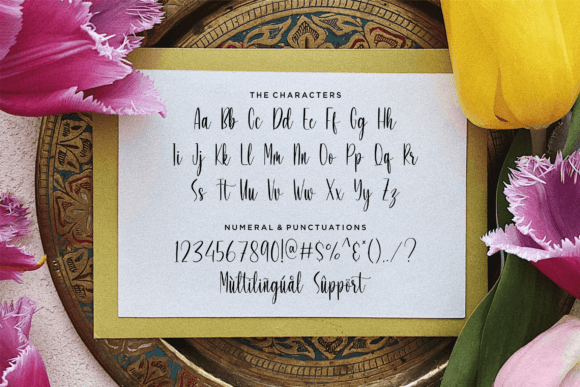 THE CHARACTERS
Aa Bb Cc Dd Ee Ff Gg Hh
Ii Jj Kk Ll Mm Nn Oo Pp Qq Rr
Ss Tt Uu Vv Ww Xx Yy Zz
NUMERAL & PUNCTUATIONS
1234567890!@#$%^&*(),./?
Mùltilingúál Sûppört